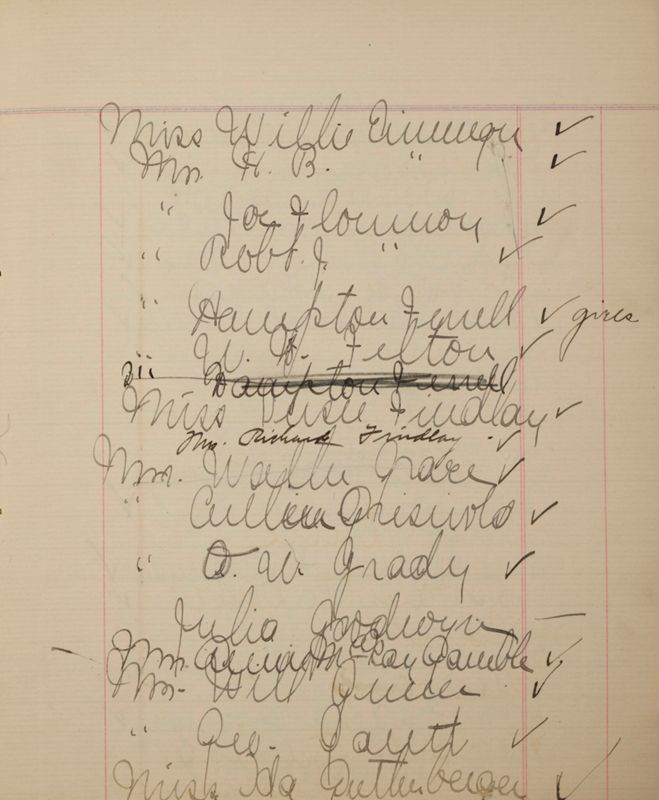 Miss Willie ✓
Mrs. H. B. " ✓
" Joe Flournoy ✓
" Robt. J. " ✓
" Hampton Ferrell ✓ girls
W. H. Felton ✓
Hampton Ferrell
Miss Findlay ✓
Mrs. Richard Findlay - ✓
Mrs. Walter Grace ✓
" Griswold ✓
" O. W. Grady ✓
Julia Goodwyn —
Mrs. McKay Gamble ✓
Mrs. Will ✓
" Geo. Gantt ✓
Miss Ida Guttenberger ✓